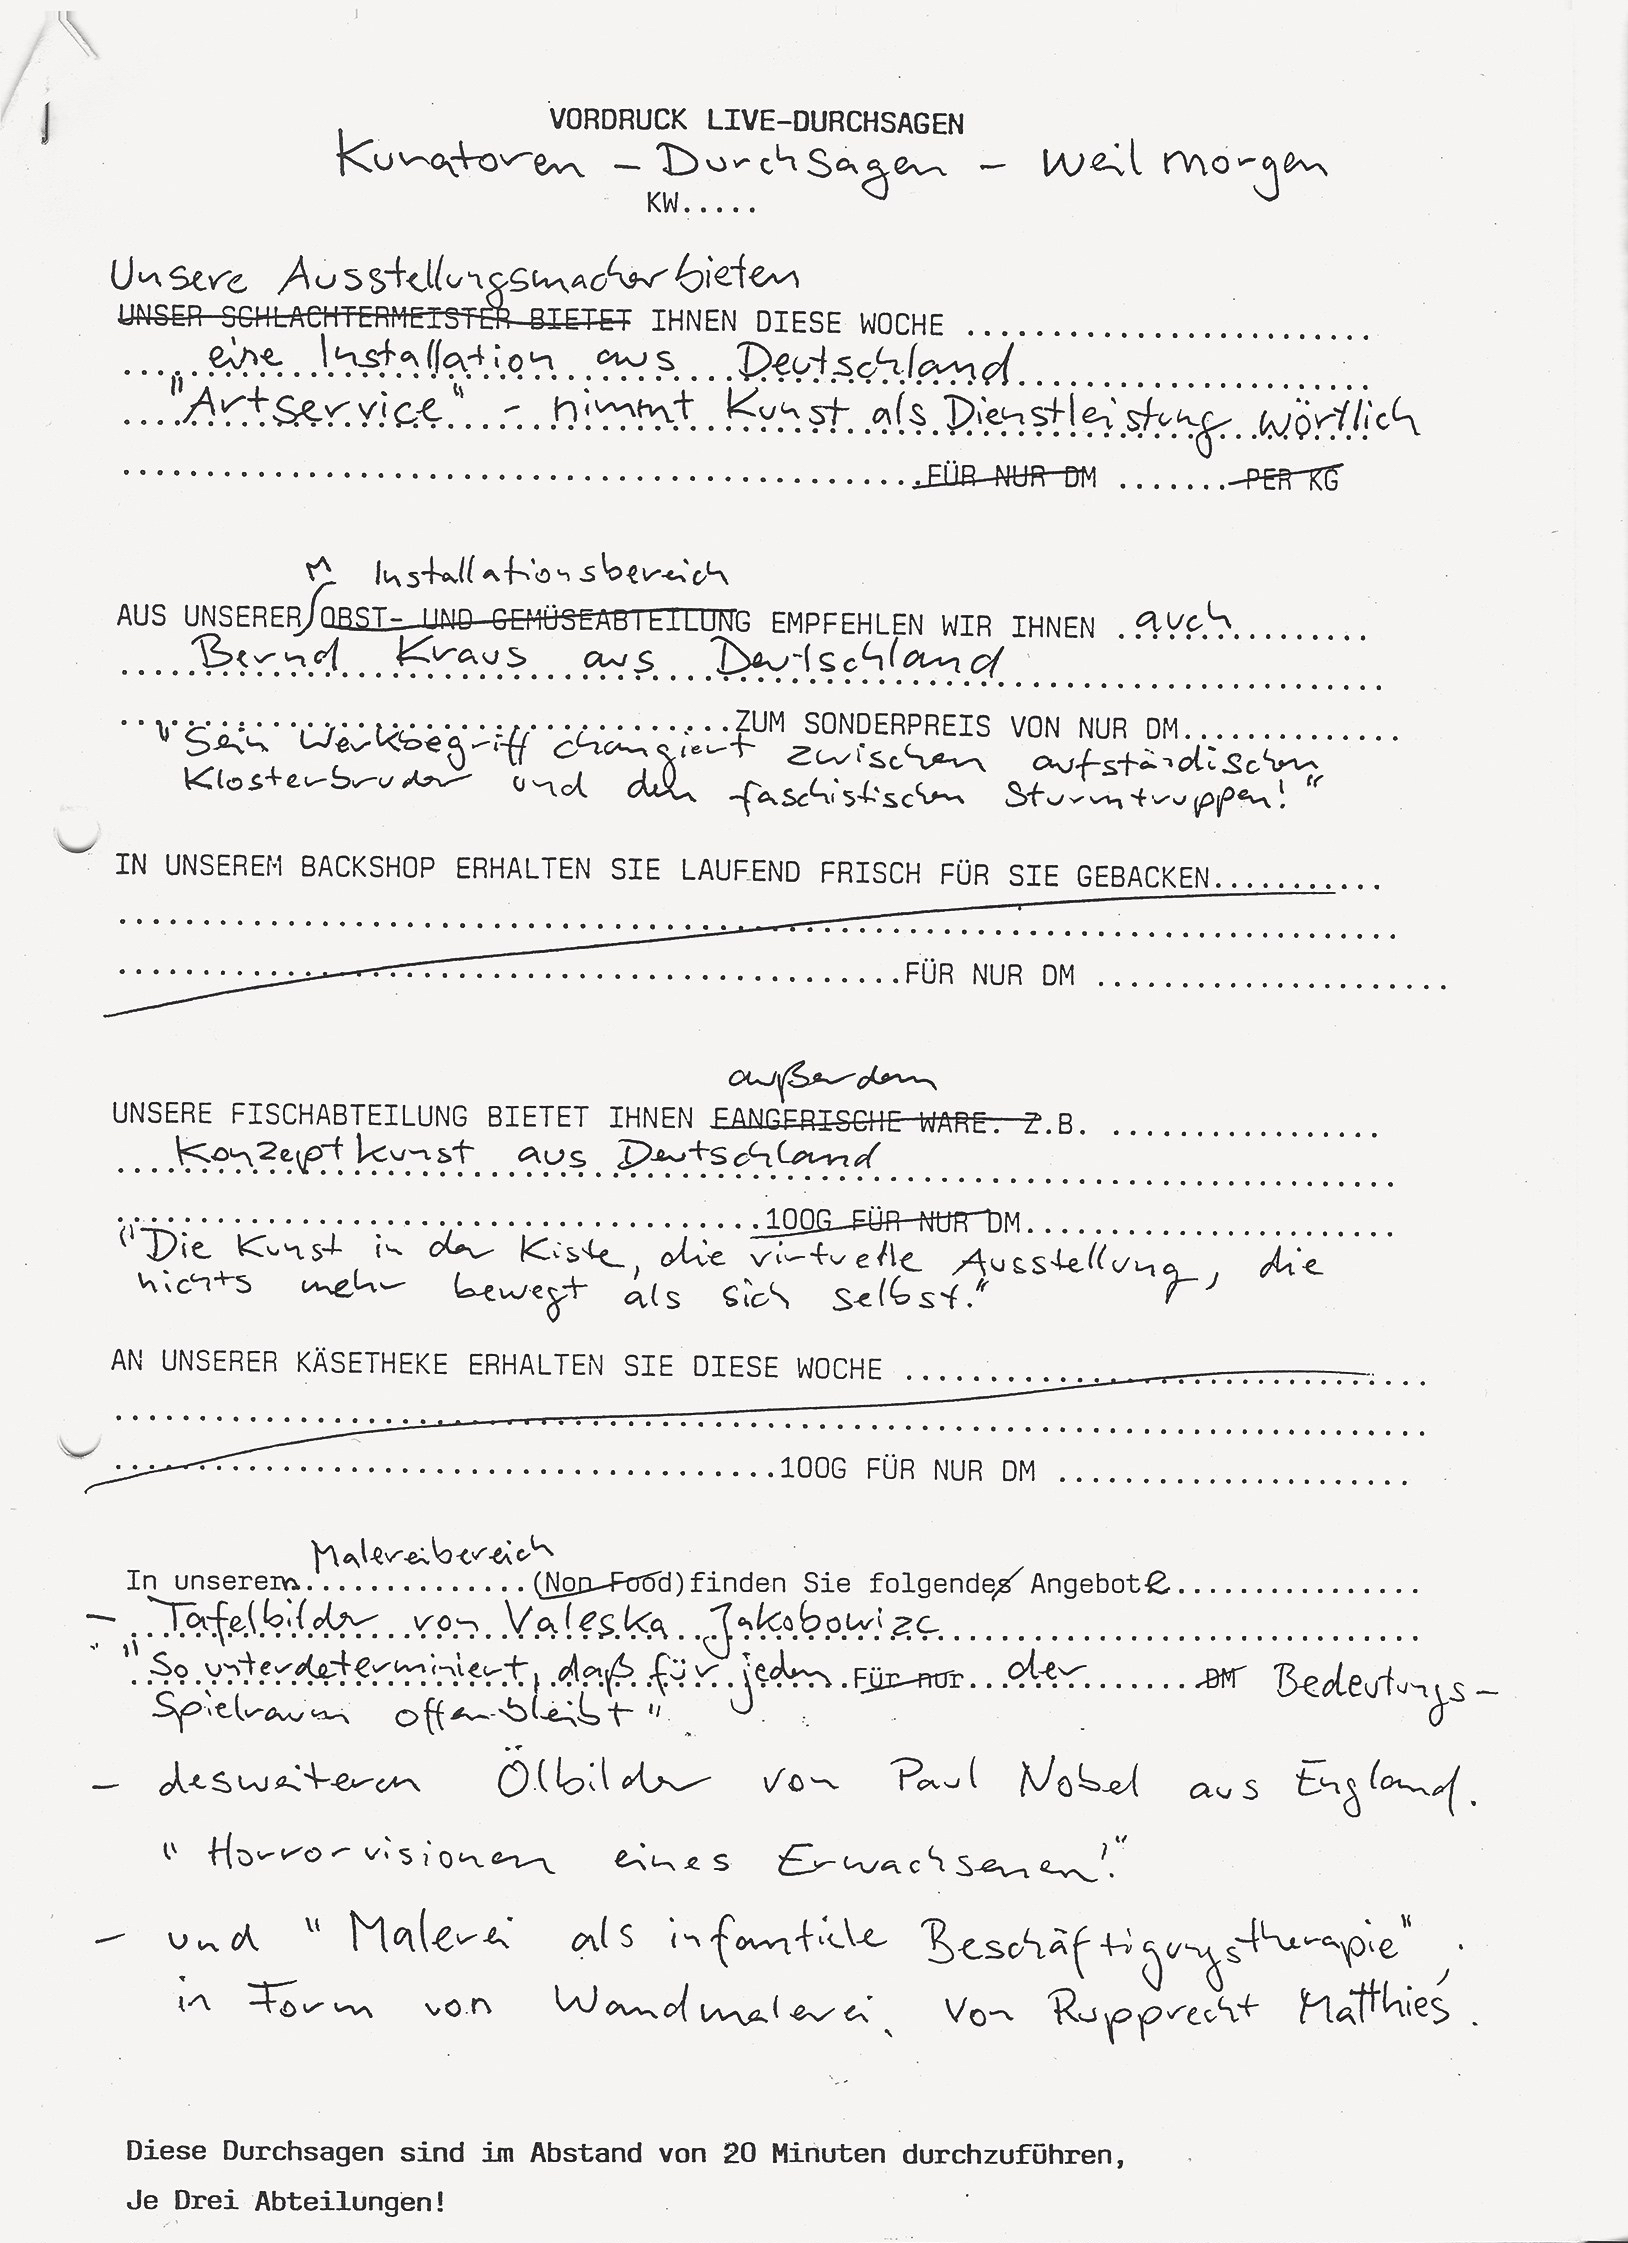 VORDRUCK LIVE-DURCHSAGEN
Kuratoren – Durchsagen – weil morgen
KW.....
Unsere Ausstellungsmacher bieten
UNSER SCHLACHTERMEISTER BIETET IHNEN DIESE WOCHE ........................
eine Installation aus Deutschland
"Artservice" - nimmt Kunst als Dienstleistung wörtlich
FÜR NUR DM ....... PER KG
M Installationsbereich
AUS UNSERER OBST- UND GEMÜSEABTEILUNG EMPFEHLEN WIR IHNEN auch
Bernd Kraus aus Deutschland
ZUM SONDERPREIS VON NUR DM.............
"Sein Werkbegriff changiert zwischen aufständischen
Klosterbruder und den faschistischen Sturmtruppen!"
IN UNSEREM BACKSHOP ERHALTEN SIE LAUFEND FRISCH FÜR SIE GEBACKEN..........
FÜR NUR DM .....................
außerdem
UNSERE FISCHABTEILUNG BIETET IHNEN FANGFRISCHE WARE. Z.B. ................
Konzeptkunst aus Deutschland
100G FÜR NUR DM......................
"Die Kunst in der Kiste, die virtuelle Ausstellung, die
nichts mehr bewegt als sich selbst."
AN UNSERER KÄSETHEKE ERHALTEN SIE DIESE WOCHE ...............................
100G FÜR NUR DM .....................
Malereibereich
In unserem.............(Non Food) finden Sie folgendes Angebote...............
– Tafelbilder von Valeska Jakobowizc
"So unterdeterminiert, daß für jeden Für nur der DM Bedeutungs-
Spielraum offenbleibt"
– desweiteren Ölbilder von Paul Nobel aus England.
"Horrorvisionen eines Erwachsenen!"
– und "Malerei als infantile Beschäftigungstherapie",
in Form von Wandmalerei, von Rupprecht Matthies.
Diese Durchsagen sind im Abstand von 20 Minuten durchzuführen,
Je Drei Abteilungen!